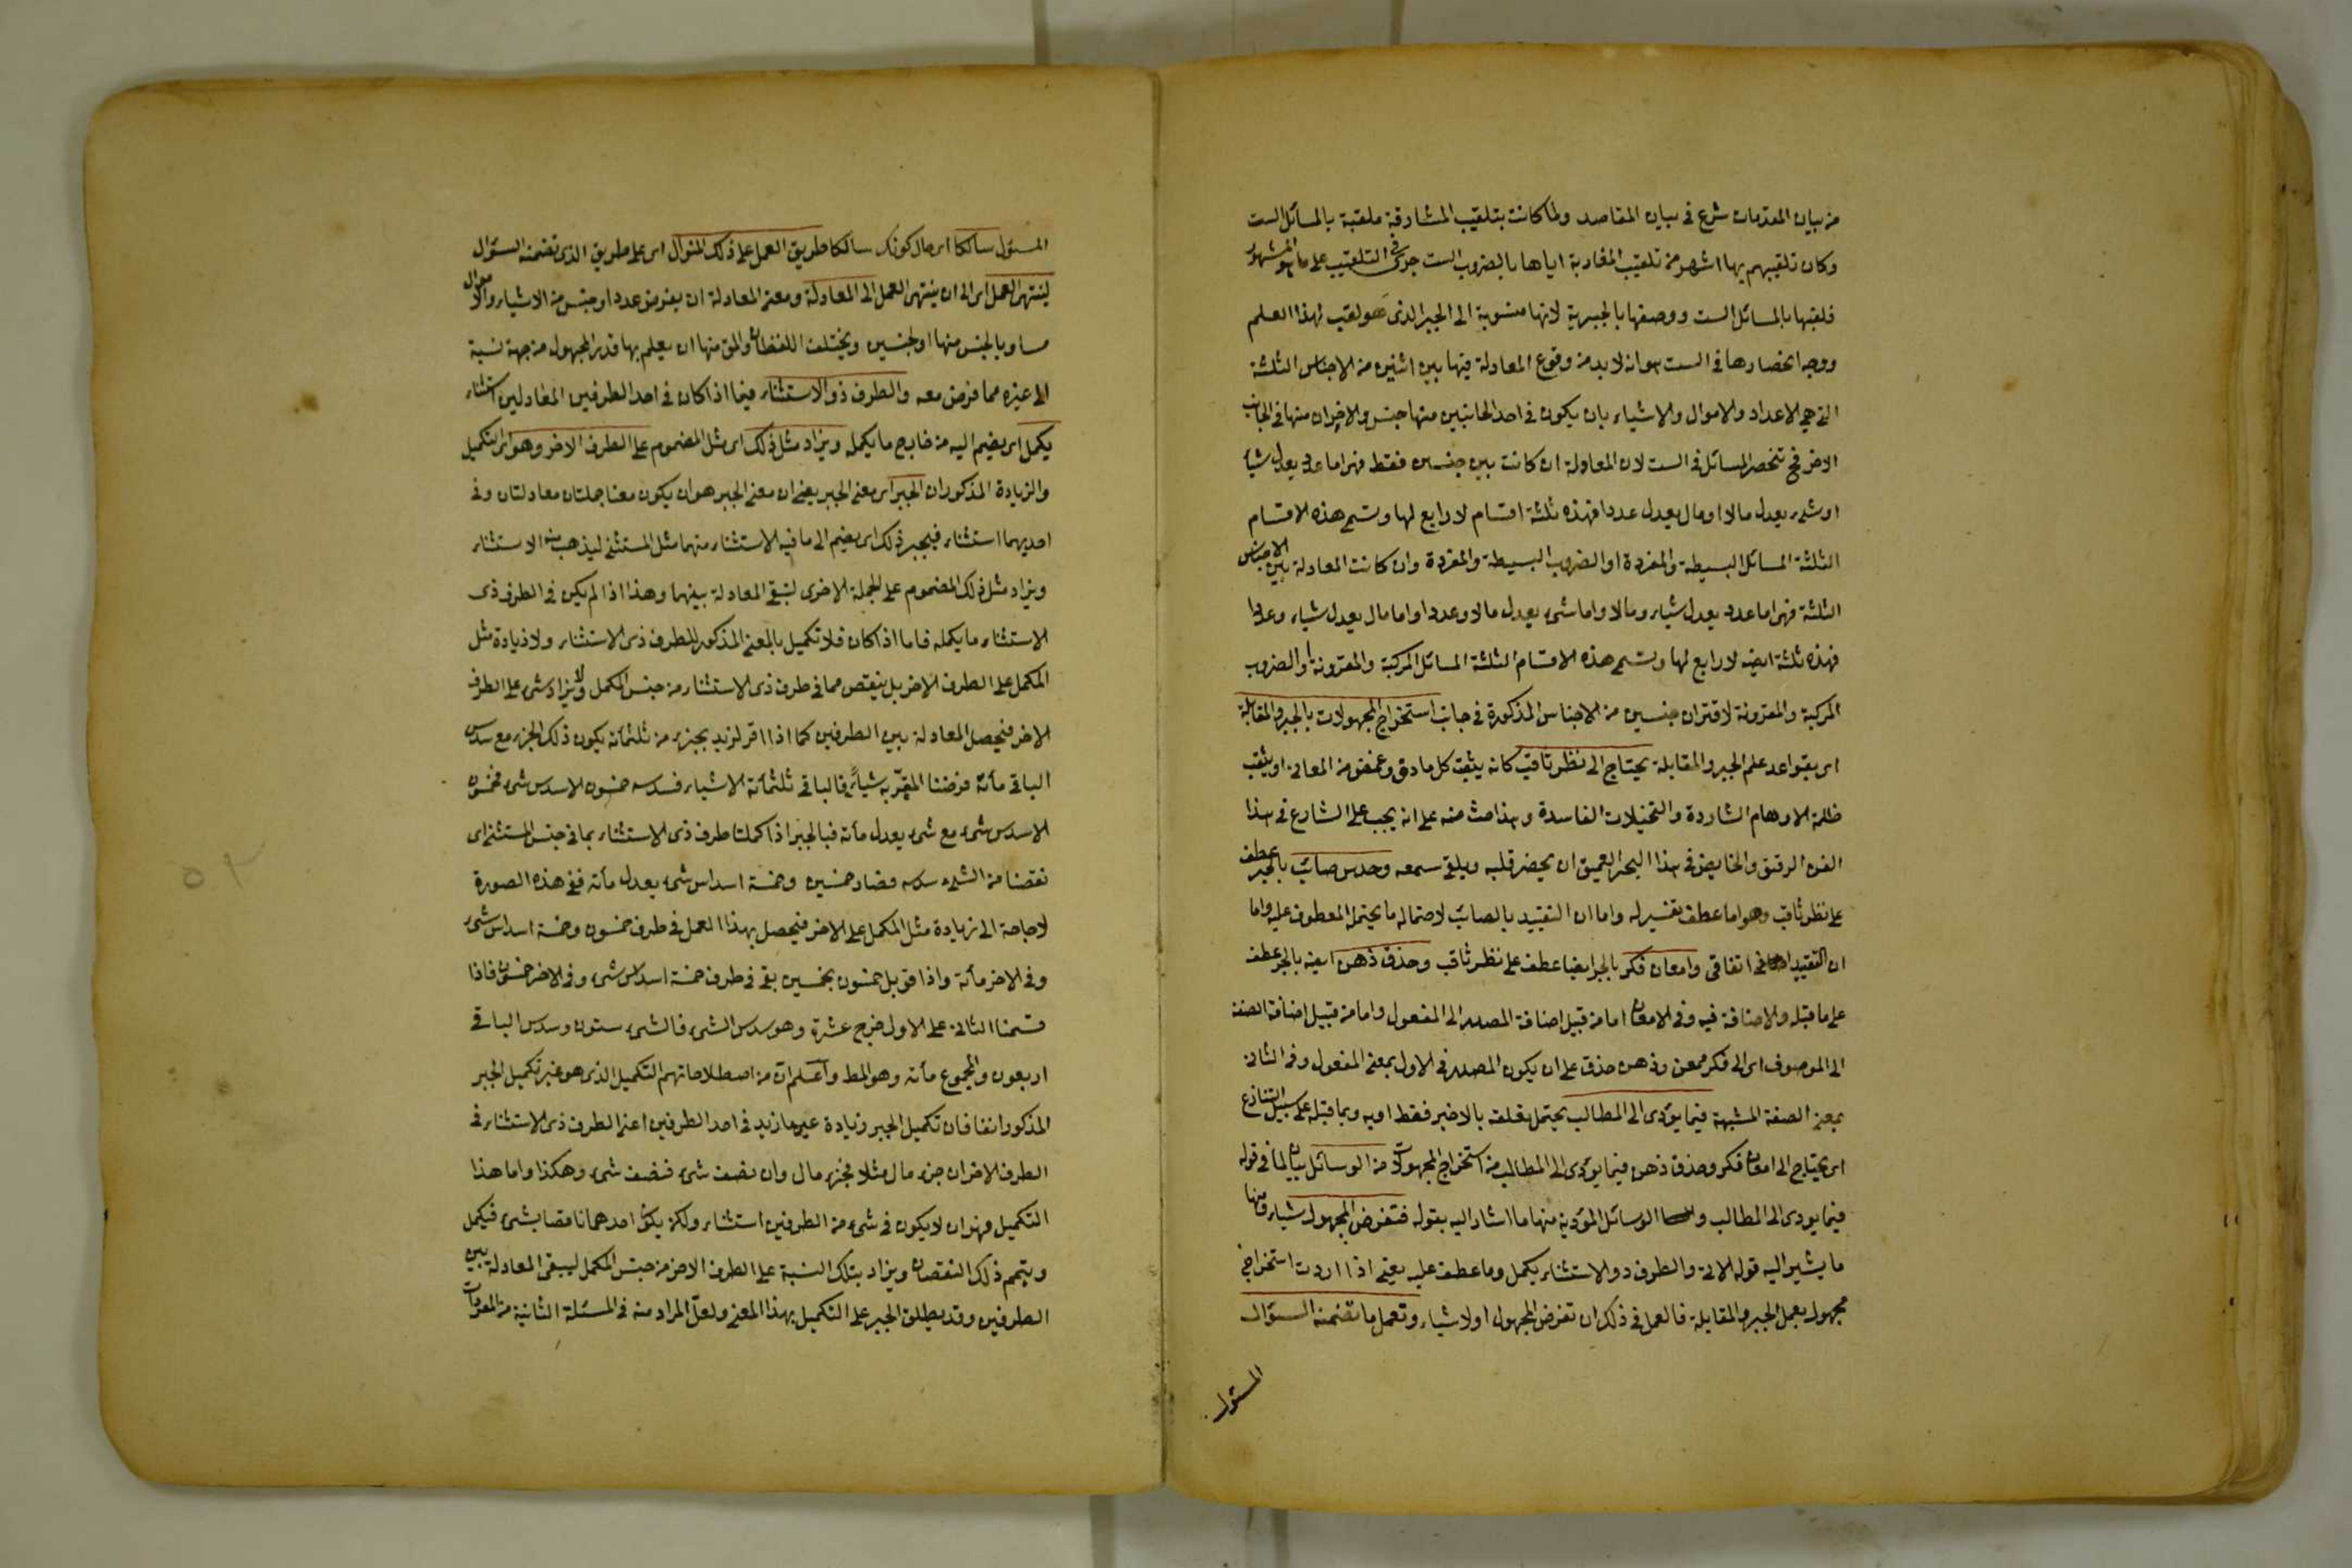 من بيان المقدمات شرع في بيان المقاصد ولما كانت بتلقيب المشارقة ملقبة بالمسائل الست
وكان تلقيبهم بها اشهر من تلقيب المغاربة اياها بالضروب الست جرى في التلقيب على ما هو المشهور
فلقبها بالمسائل الست ووصفها بالجبرية لانها منسوبة الى الجبر الذى هو لقب لهذا العلم
ووجه انحصارها في الست هو انه لا بد من وقوع المعادلة فيها بين اثنين من الاجناس الثلثة
التى هى الاعداد والاموال والاشياء بان يكون في احد الجانبين منها جنس والاخران منها في الجانب
الاخر فح تنحصر المسائل في الست لان المعادلة ان كانت بين جنسين فقط فهى اما عدد يعدل شيأ
او شىء يعدل مالا او مال يعدل عددا فهذه ثلثة اقسام لا رابع لها وتسمى هذه الاقسام
الثلثة المسائل البسيطة والمفردة او الضروب البسيطة والمفردة وان كانت المعادلة بين الاجناس
الثلثة فهى اما عدد يعدل شياء ومالا واما شىء يعدل مالا وعددا واما مال يعدل شياء وعددا
فهذه ثلثة ايضا لا رابع لها وتسمى هذه الاقسام الثلثة المسائل المركبة والمقترونة او الضروب
المركبة والمقترونة لاقتران جنسين من الاجناس المذكورة في جانب استخراج المجهولات بالجبر والمقابلة
اى بقواعد علم الجبر والمقابلة يحتاج الى نظر ثاقب كانه يثقب كل ما دق وغمض من المعانى او يثقب
ظلمة الاوهام الشاردة والتخيلات الفاسدة وهذا حث منه على انه يجب على الشارع في هذا
الفن الرقيق والخايض في هذا البحر العميق ان يحضر قلبه ويلقى سمعه وحدس صائب بالجر عطف
على نظر ثاقب وهو اما عطف تفسير له واما ان التقييد بالصائب لاحتماله ما يحتمله المعطوف عليه واما
ان التقييد اتفاقى وامعان فكر بالجر ايضا عطف على نظر ثاقب وحذق ذهن ايضا بالجر عطف
على ما قبله والاضافة فيه وفي الامعان اما من قبيل اضافة المصدر الى المفعول واما من قبيل اضافة الصفة
الى الموصوف اى الى فكر ممعن وذهن حذق على ان يكون المصدر في الاول بمعنى المفعول وفي الثانى
بمعنى الصفة المشبهة فيما يؤدى الى المطالب يحتمل تعلقه بالاخير فقط او به وبما قبله على سبيل التنازع
اى يحتاج الى امعان فكر وحذق ذهن فيما يؤدى الى المطالب من استخراج المجهولات من الوسائل بيان لما في قوله
فيما يودى الى المطالب و الوسائل المؤدية منها ما اشار اليه بقوله فتفرض المجهول شياء ومنها
ما يشير اليه قوله الاتى والطرف ذو الاستثناء يكمل وما عطف عليه يعنى اذا اردت استخراج
مجهول بعمل الجبر والمقابلة فالعمل في ذلك ان تفرض المجهول اولا شياء وتعمل ما تضمنه السؤال
المسئول
المسئول سالكا اى حال كونك سالكا طريق العمل على ذلك المنوال اى على طريق الذى تضمنه السؤال
لينتهى العمل اى الى ان ينتهى العمل الى المعادلة ومعنى المعادلة ان يفرض عدد او جنس من الاشياء والاموال
مساويا لجنس منها او لجنسين ويختلف اللفظان والمق منها ان يعلم بها قدر المجهول من جهة نسبة
الى غيره مما فرض معه والطرف ذو الاستثناء فيما اذا كان في احد الطرفين المعادلين استثناء
يكمل اى يضم اليه من خارج ما يكمله ويزاد مثل ذلك اى مثل المضموم على الطرف الاخر وهو اى التكميل
والزيادة المذكوران الجبر اى معنى الجبر يعنى ان معنى الجبر هو ان يكون معنا جملتان معادلتان وفى
احديهما استثناء فيجبر ذلك اى يضم الى ما فيه الاستثناء منهما مثل المستثنى ليذهب منه الاستثناء
ويزاد مثل ذلك المضموم على الجملة الاخرى لتبقى المعادلة بينهما وهذا اذا لم يكن في الطرف ذى
الاستثناء ما يكمله فاما اذا كان فلا تكميل بالمعنى المذكور للطرف ذى الاستثناء ولا زيادة مثل
المكمل على الطرف الاخر بل ينقص مما في طرف ذى الاستثناء من جنس المكمل ولا يزاد شىء على الطرف
الاخر فيحصل المعادلة بين الطرفين كما اذا اقر لزيد بجزء من ثلثمائة يكون ذلك الجزء مع سدس
الباقى مأئة فرضنا المقر به شيأ فالباقى ثلثمائة الاشياء فسدسه خمسون الاسدس شىء فخمسون
الاسدس شىء مع شىء يعدل مأئة فبالجبر اذا كملنا طرف ذى الاستثناء بما في جنس المستثنى اى
نقصنا من الشىء سدسه فصار خمسين وخمسة اسداس شىء يعدل مأئة ففى هذه الصورة
لا حاجة الى زيادة مثل المكمل على الاخر فيحصل بهذا العمل في طرف خمسون وخمسة اسداس شىء
وفى الاخر مأئة واذا قوبل خمسون بخمسين بقى في طرف خمسة اسداس شىء وفى الاخر خمسون فاذا
قسمنا الثانى على الاول خرج عشرة وهو سدس الشىء فالشىء ستون وسدس الباقى
اربعون والمجموع مأئة وهو المط واعلم ان من اصطلاحاتهم التكميل الذى هو غير تكميل الجبر
المذكور انفا فان تكميل الجبر زيادة عين ما زيد في احد الطرفين اعنى الطرف ذى الاستثناء في
الطرف الاخر ان جزء مال مثلا فجزء مال وان نصف شىء فنصف شىء وهكذا واما هذا
التكميل فهو ان لا يكون في شىء من الطرفين استثناء ولكن يكون احدهما ناقصا بشىء فيكمل
ويتمم ذلك النقصان ويزاد بتلك النسبة على الطرف الاخر من جنس المكمل ليبقى المعادلة بين
الطرفين وقد يطلق الجبر على التكميل بهذا المعنى ولعل المراد منه في المسئلة الثانية من المفردات